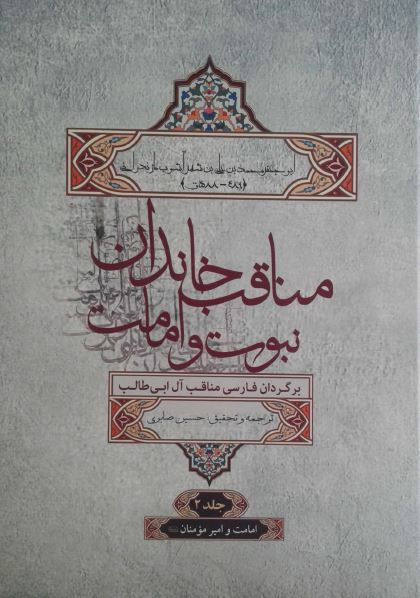 ابو جعفر محمد بن علی بن شهر آشوب مازندرانی
﴿۴۸۹-۵۸۸ق﴾
مناقب خاندان
نبوت و امامت
برگردان فارسی مناقب آل ابی‌طالب
ترجمه و تحقیق: حسین صابری
جلد ۲
امامت و امیر مؤمنان